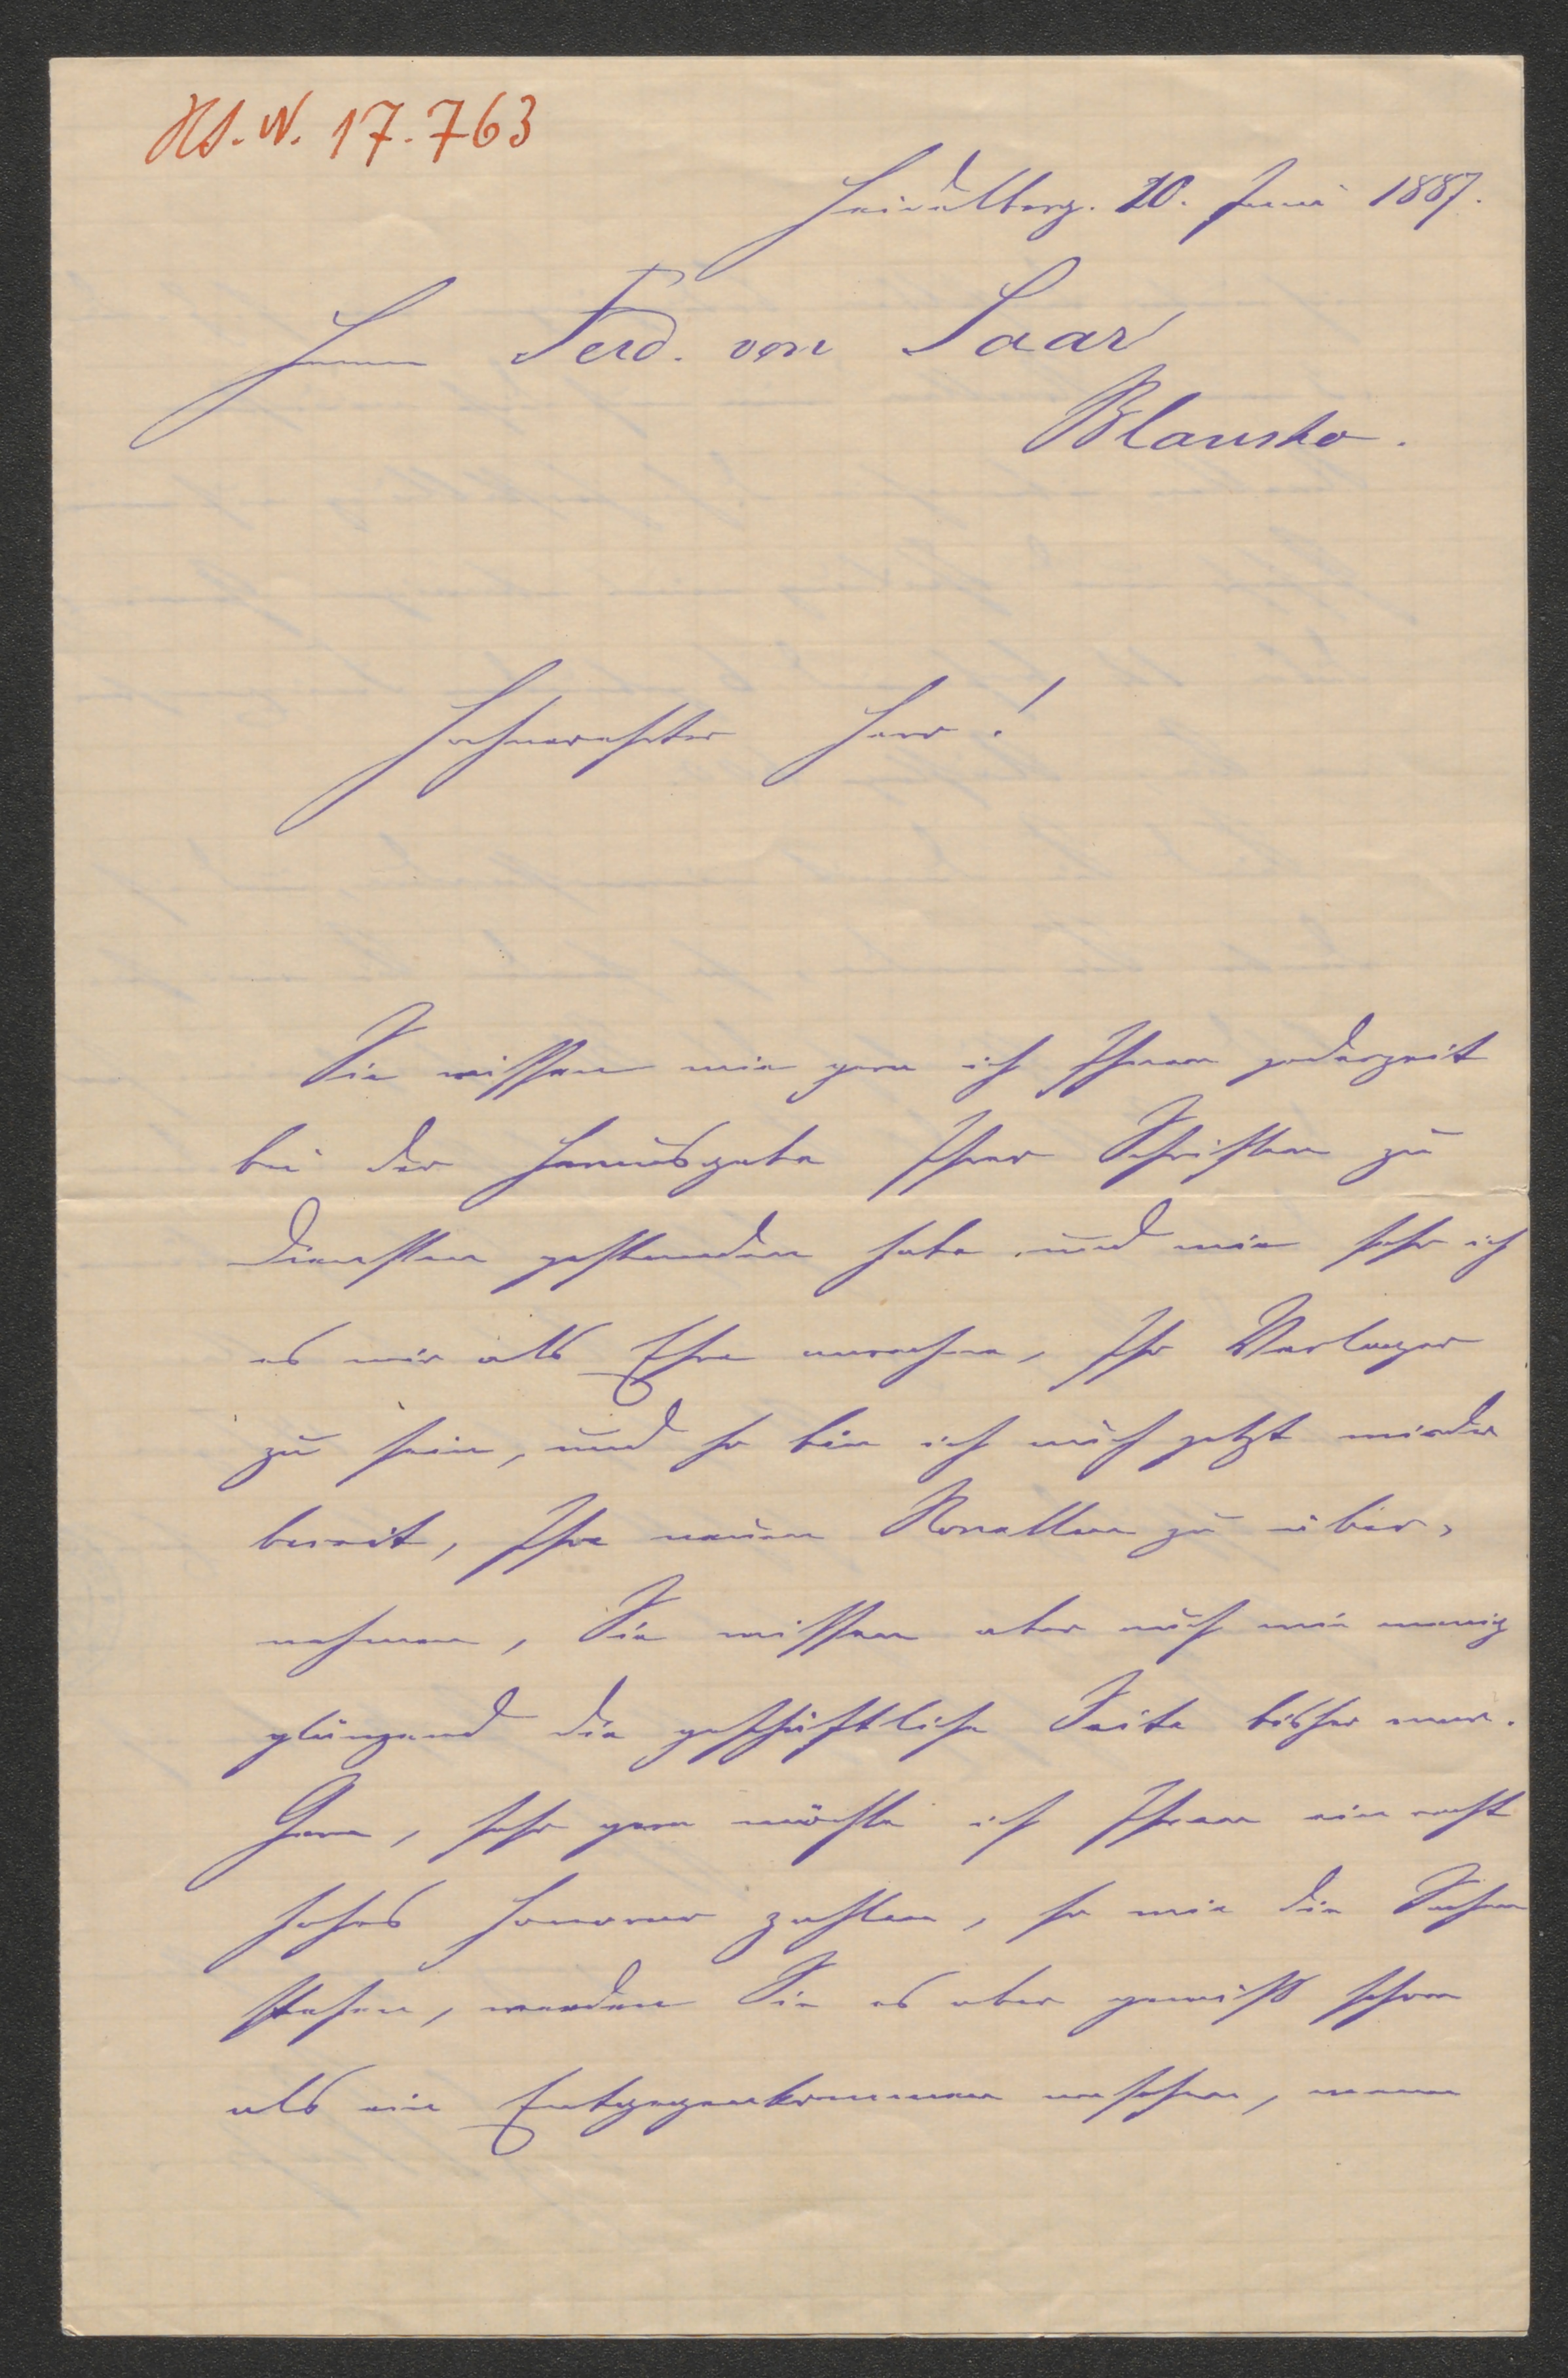 HS. N. 17.763
Heidelberg. 20. Juni 1887.
Herrn Ferd. von Saar
Blansko.
Hochverehrter Herr!
Sie wissen wie gern ich Ihnen jederzeit
bei der Herausgabe Ihrer Schriften zu
Diensten gestanden habe und wie sehr ich
es mir als Ehre anrechne, Ihr Verleger
zu sein, und so bin ich auch jetzt wieder
bereit, Ihre neuen Novellen zu über-
nehmen, Sie wissen aber auch wie wenig
glänzend die geschäftliche Seite bisher war.
Gern, sehr gern möchte ich Ihnen ein recht
hohes Honorar zahlen, so wie die Sachen
stehen, werden Sie es aber gewiß schon
als ein Entgegenkommen ansehen, wenn